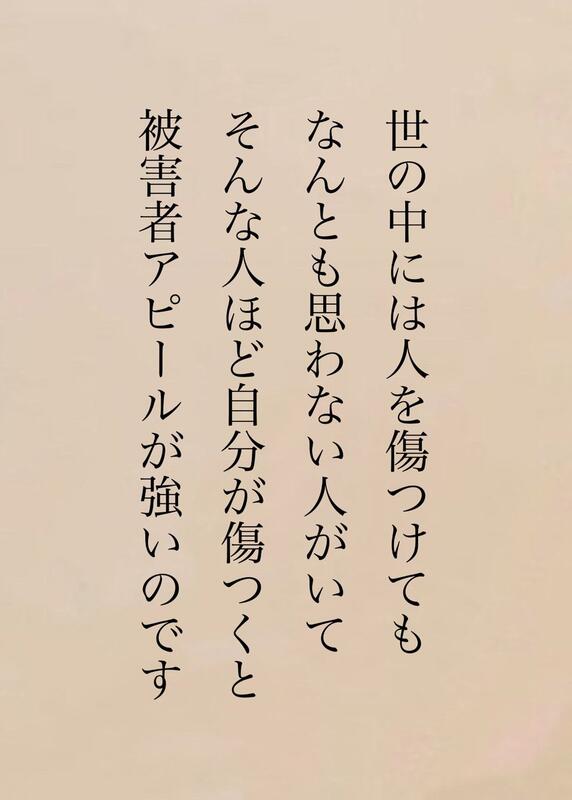 世の中には人を傷つけても
なんとも思わない人がいて
そんな人ほど自分が傷つくと
被害者アピールが強いのです